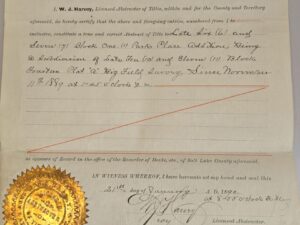 I, W. J. Harvey, Licensed Abstracter of Titles, within and for the County and Territory
aforesaid, do hereby certify that the above and foregoing entries, numbered from 1 to
inclusive, constitute a true and correct Abstract of Title to Lots Six (6) and
Seven (7) Block One (1) Park Place Addition, being
a Subdivision of Lots Ten (10) and Eleven (11) Block
Plat "A" Big Field Survey, Since
11th 1889 at o'clock P.M.
as appears of Record in the office of the Recorder of Deeds, etc., of Salt Lake County aforesaid.
IN WITNESS WHEREOF, I have hereunto set my hand and seal this
21st day January A.D. 1890
at o'clock
Harvey
Licensed Abstracter.